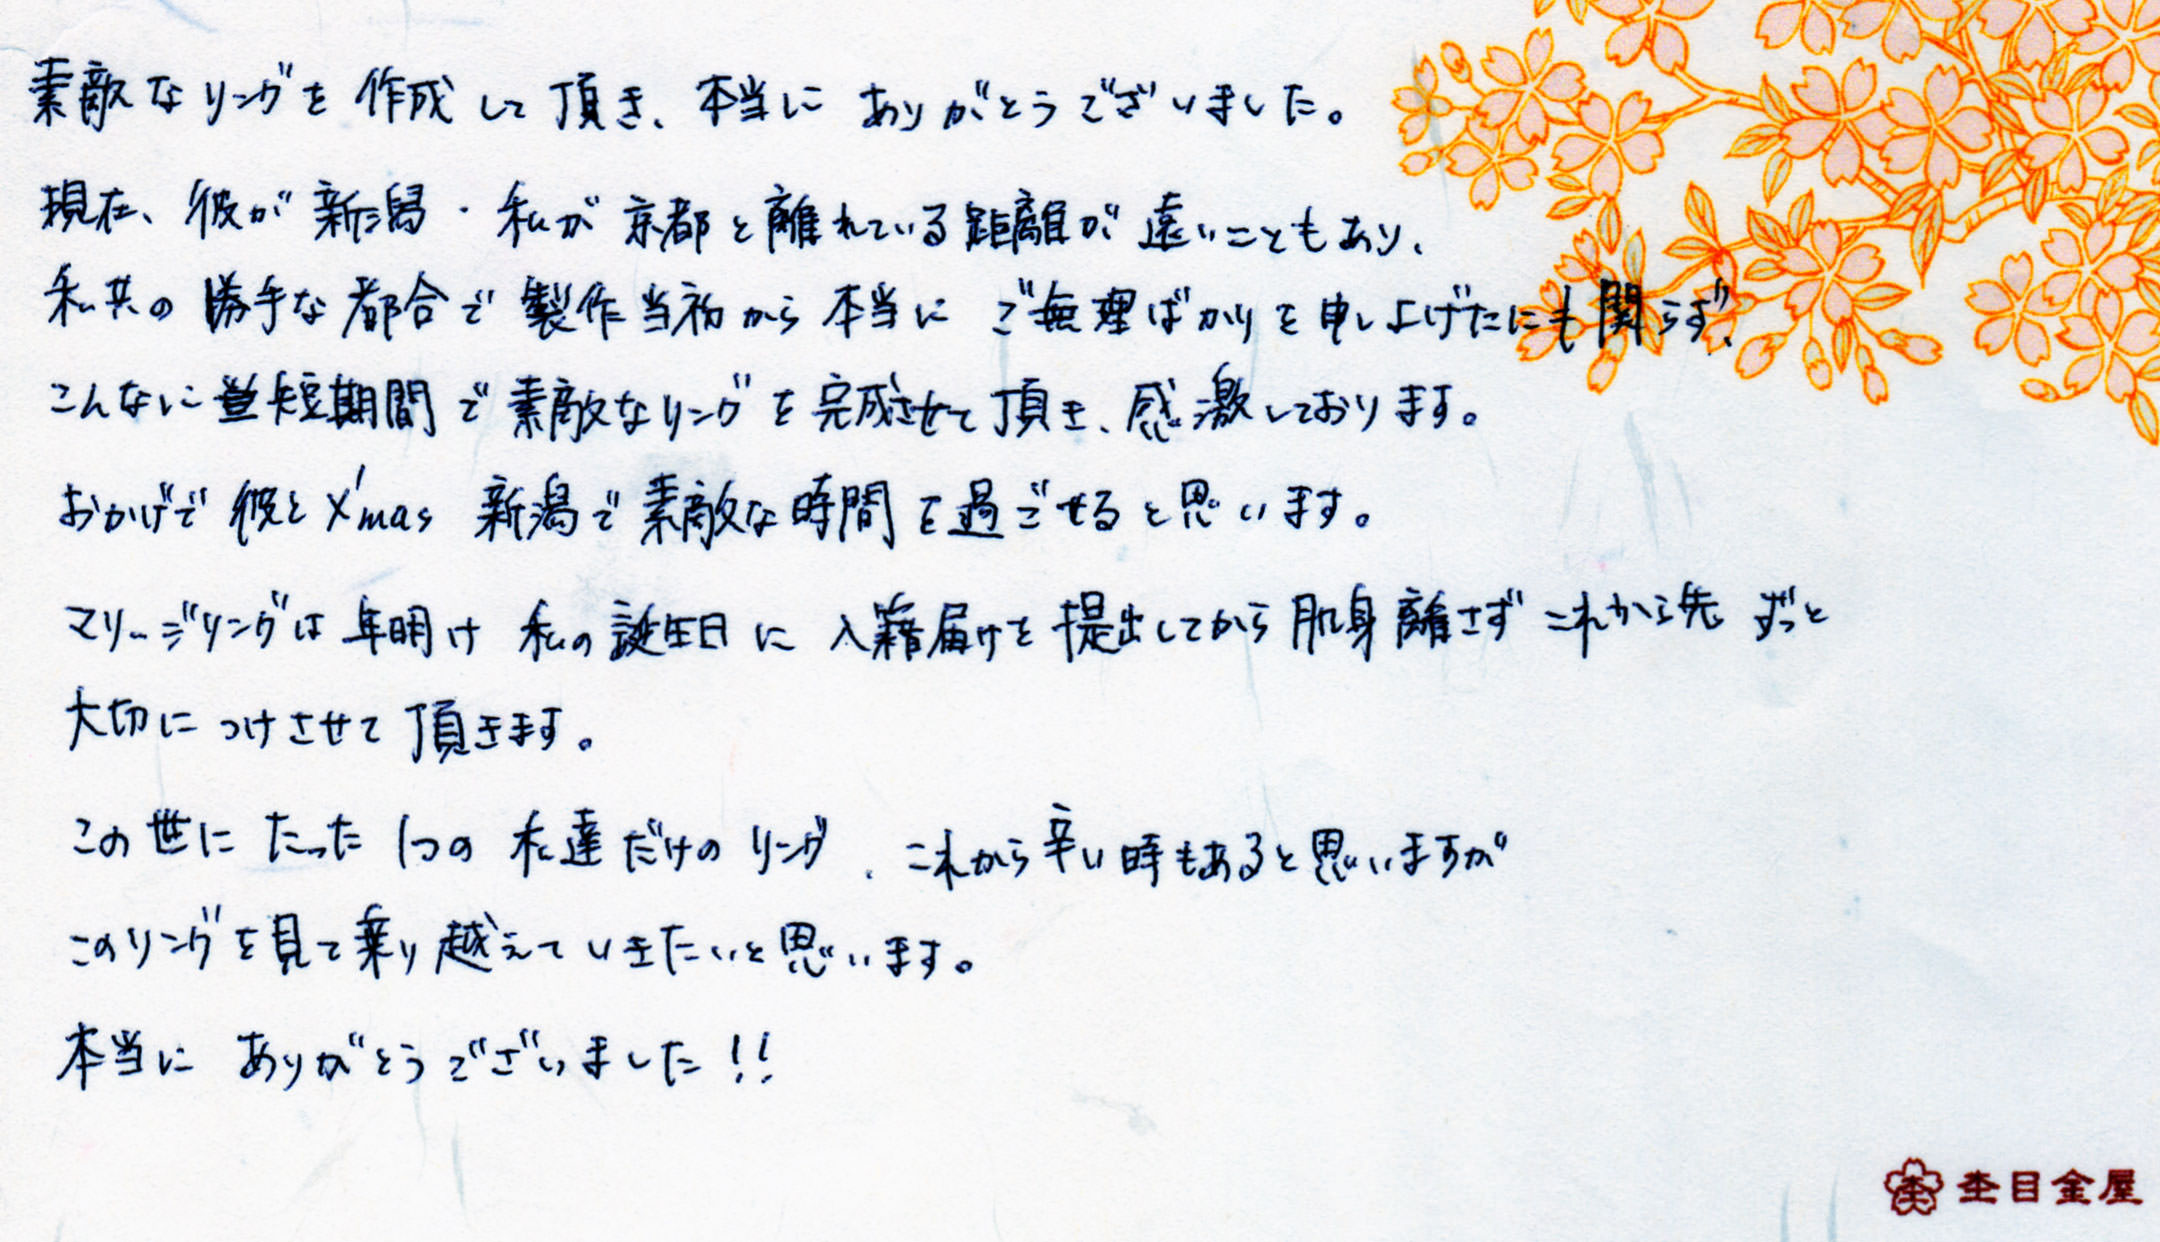 素敵なリングを作成して頂き、本当にありがとうございました。
現在、彼が新潟・私が京都と離れている距離が遠いこともあり、
私共の勝手な都合で製作当初から本当にご無理ばかりを申し上げたにも関らず、
こんなに短期間で素敵なリングを完成させて頂き、感激しております。
おかげで彼とX'mas 新潟で素敵な時間を過ごせると思います。
マリッジリングは年明け私の誕生日に入籍届けを提出してから肌身離さずこれから先ずっと
大切につけさせて頂きます。
この世にたった1つの私達だけのリング、これから辛い時もあると思いますが
このリングを見て乗り越えていきたいと思います。
本当にありがとうございました!!
杢目金屋